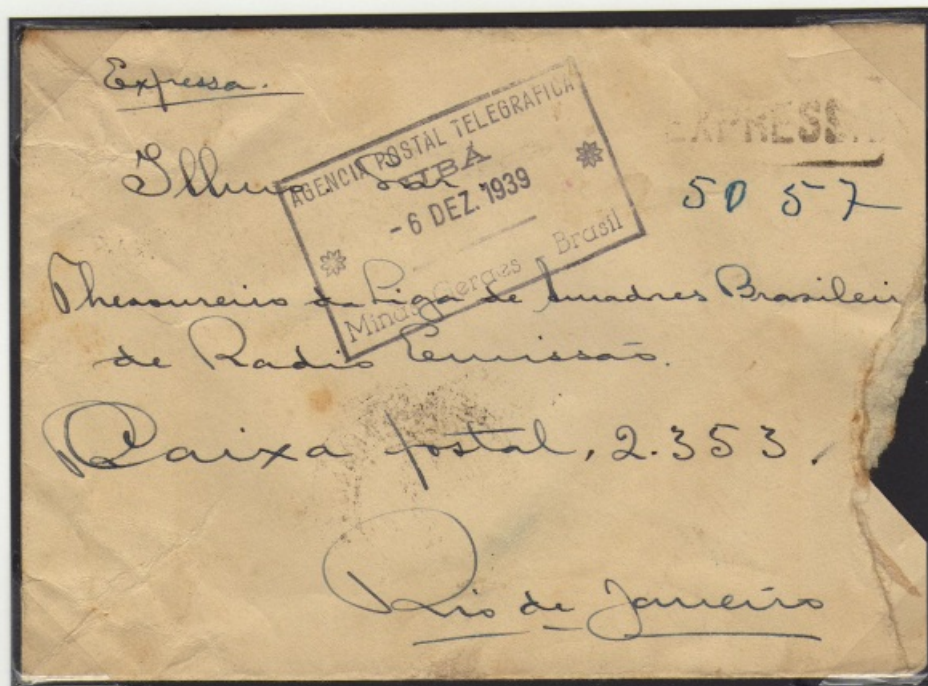 Expressa.
EXPRESSA
Illmo. Snr.
AGENCIA POSTAL TELEGRAFICA
UBÁ
- 6 DEZ. 1939
Minas Geraes - Brasil
5057
Thesoureiro da Liga de Amadres Brasileir
de Radio Emissão.
Caixa postal, 2.353.
Rio de Janeiro